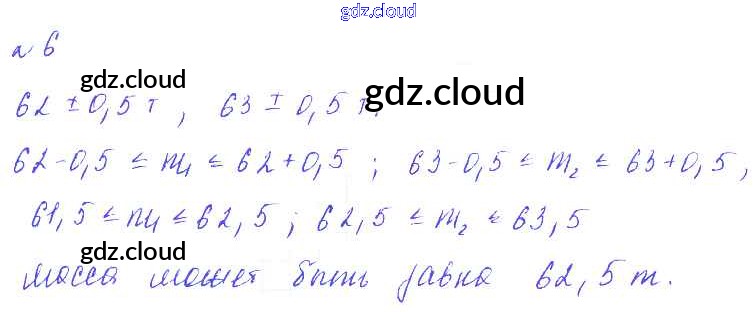 gdz.cloud
№ 6
gdz.cloud
gdz.cloud
62 ± 0,5 т, 63 ± 0,5 т.
62-0,5 ≤ m₁ ≤ 62+0,5 ; 63-0,5 ≤ m₂ ≤ 63+0,5,
61,5 ≤ m₁ ≤ 62,5 ; 62,5 ≤ m₂ ≤ 63,5
gdz.cloud
Масса может быть равна 62,5 т.